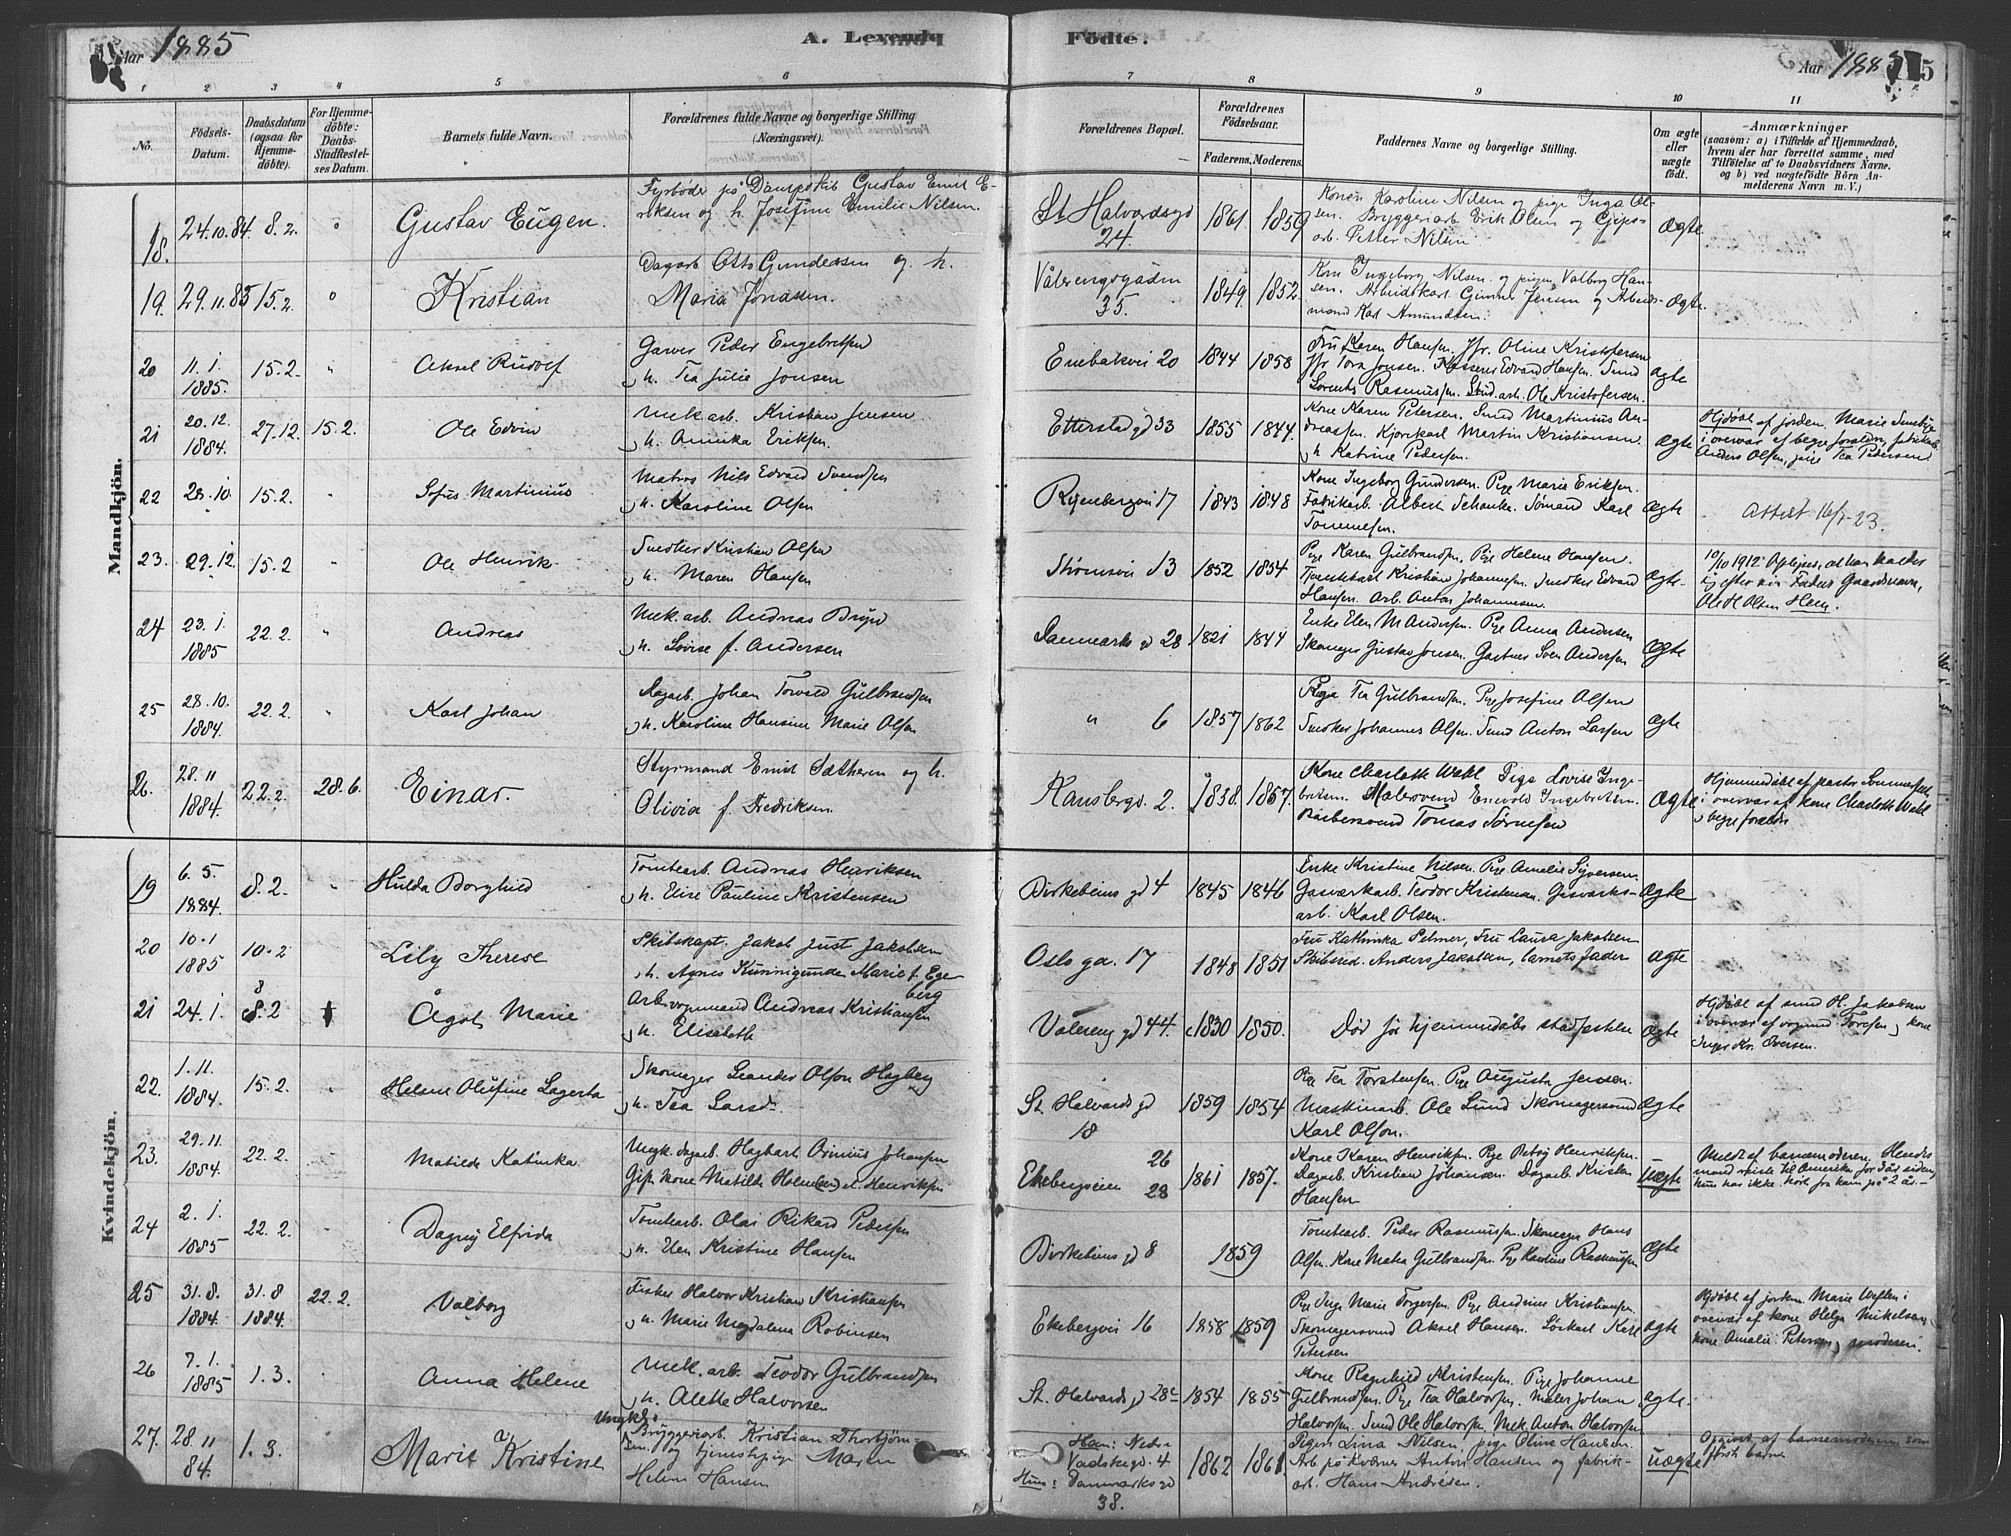 Aar 1885
A. Levende
Födte.
Aar 1885
1 2 3 4 5 6 7 8 9 10 11
No.
Födsels-Datum.
Daabsdatum (ogsaa for Hjemmedöbte).
For Hjemmedöbte: Daabs-Stadfæstelses Datum.
Barnets fulde Navn.
Forældrenes fulde Navne og borgerlige Stilling (Næringsvei).
Forældrenes Bopæl.
Forældrenes Födselsaar.
Faderens. Moderens.
Faddernes Navne og borgerlige Stilling.
Om ægte eller uægte födt.
Anmærkninger
(saasom: a) i Tilfælde af Hjemmedaab, hvem der har forrettet samme, med Tilföielse af to Daabsvidners Navne. og b) ved uægtefödte Börn Anmelderens Navn m. V.)
Mandkjön.
18. 24.10.84 8.2. " Gustav Eugen.
Fyrböder på Dampskib Gustav Emil Eriksen og h. Josefine Emilie Nilsen.
St Halvardsgd 24. 1861. 1859
Konen Karoline Nilsen og pige Inga Olsen. Bryggeriarb Erik Olsen og Gipsarb. Petter Nilsen
Ægte
19. 29.11.83 15.2. " Kristian
Dagarb Otto Gundersen og h. Maria Jonassen.
Vålerengsgaden 35. 1849. 1852.
Kone Ingeborg Nilsen og pigen Valborg Hansen. Arbeidskarl Gunner Jensen og Arbeidsmand Karl Amundsen.
Ægte.
20 11.1. 1885. 15.2. " Aksel Rudolf
Garver Peder Engebretsen
og h. Tea Julie Jonsen
Enebakvei 20 1844 1858
Fru Karen Hansen. Jfr. Oline Kristofersen
Jfr Tora Jonsen. Kasserer Edvard Hansen. Smed
Lorents Rasmussen. Stud. arb. Ole Kristofersen.
ægte
21 20.12. 1884. 27.12. 15.2. Ole Edvin
Mek. arb. Kristian Jensen
og h. Annika Eriksen.
Etterstad gd 33 1855 1844.
Kone Karen Petersen. Smed Martinius Andreassen. Kjørekarl Martin Kristiansen
og h Katrine Pedersen.
ægte
Hjdöbt af jordem. Marie
i overvær af begge foreldre, fabrikarb.
Anders Olsen, pige Tea Pedersen
22 28.10. 15.2. " Sofus Martinius
Matros Nils Edvard Svendsen
og h. Karoline Olsen
17 1843 1848
Kone Ingeborg Gundersen. Pige Marie Eriksen.
Fabrikarb. Albert Schanke. Sømand Karl
Tommesen.
ægte
Attest 16/7-23.
23. 29.12. 15.2 " Ole Henrik
Snedker Kristian Olsen
og h. Maren Hansen
Strømsvei 13 1852 1854
Pige Karen Gulbrandsen, Pige Helene Hansen.
Tjenstekarl Kristian Johannesen. Snedker Edvard
Hansen. Arb. Anton Johannesen.
Ægte.
10/10 1912: Oplyses, at han kaldes
sig efter sin Faders Gaardsnavn,
Ole H. Olsen Hem.
24 23.1. 1885 22.2. " Andreas
Mek. arb. Andreas Bryn
og h. Lovise f. Andersen
Danmarks gd 28 1821 1844
Enke Elen M Andersen. Pige Anna Andersen
Skomager Gustav Jonsen. Gartner Sven Andersen
ægte
25 28.10. 1884. 22.2. " Karl Johan
Dagarb. Johan Torvald Gulbrandsen
og h. Karoline Hansine Marie Olsen
" 6 1857 1862
Pige Tea Gulbrandsen. Pige Josefine Olsen
Snedker Johannes Olsen. Smed Anton Larsen
ægte
26. 28.11 1884. 22.2. 28.6. Einar.
Styrmand Emil Sætheren og h.
Olivia f. Fredriksen.
Kansbergd. 2. 1838. 1857.
Kone Charlotte Wahl Pige Lovise Ingebretsen. Malersvend Enevold Ingebretsen.
Barbersvend Tomas Sørensen
Ægte
Hjemmedöbt af pastor Sommerfelt
i overvær af kone Charlotte Wahl
og begge foreldre
Kvindekjön.
19 6.5. 1884. 8.2. " Hulda Borghild
Tomtearb. Andreas Henriksen
og h. Elise Pauline Kristensen
Birkebeins gd 4 1845 1846
Enke Kristine Nilsen. Pige Amalie Syversen.
Gasværkarb. Teodor Kristensen. Gasværksarb. Karl Olsen.
ægte
20 10.1 1885 10.2 Lily Therese
Skibskapt. Jakob Just Jakobsen
og h. Agnes Kunnigunde Marie f. Egeberg
Oslo ga. 17 1848 1851
Fru Kathinka Pelmer, Fru Laura Jakobsen
Skibsred. Anders Jakobsen, barnets fader
ægte
21 24.1. 8.2 † Ågot Marie
Arb. vognmand Andreas Kristiansen
og h. Elisabeth
Valereng gd 44. 1830 1850.
Död før hjemmedåbs stadfæstelse
ægte
Hjdöbt af smed H. Jakobsen
i overvær af vognmd Toresen og kone
Inger Kr. Iversen.
22. 1.11. 1884. 15.2. " Helene Olefine Lagerta
Skomager Leander Olson Hagberg
og h. Tea Larsd.
St. Halvards gd 18 1859 1854
Pige Tea Torstensen. Pige Augusta Jensen.
Maskinarb. Ole Lund. Skomagersvend
Karl Olsen.
ægte
23. 29.11. 1884 22.2. " Matilde Katinka
Ungk. dagarb. Hagbart Johansen
Gift kone Matilde Holm(en) f. Henriksen
Ekebergveien 26 28 1861 1857.
Kone Karen Henriksen. Pige Petra Henriksen.
Dagarb. Kristian Johansen. Dagarb. Kristen
Hansen
uægte
Meldt af barnemoderen. Hendes
mand reiste til Amerika for 3 år siden,
hun har ikke hört fra ham på 2 år.-
24 2.1. 1885 22.2. " Dagny Elfrida
Tomtearb. Olai Rikard Pedersen
og h. Elen Kristine Hansen
Birkebeins gd 8 1859
Tomtearb. Peder Rasmussen. Skomager Hans
Olsen. Kone Matea Gulbrandsen. Pige Karoline Rasmussen
ægte
25 31.8. 1884. 31.8 1884. 22.2. Valborg
Fisker Halvor Kristian Kristiansen
og h. Marie Magdalena Robinsen
Ekebergvei 16 1858 1859
Pige Inga Marie Torgersen. Pige Andrine Kristiansen.
Skomagersvend Aksel Hansen. Karl
Petersen
ægte
Hjdöbt af jordem Marie Weflen i
overvær af kone Helga Mikelsen,
kone Amalie Petersen og moderen.
26 7.1. 1885 1.3. Anna Helene
Mek. arb. Teodor Gulbrandsen
og h. Alette Halvorsen
St. Halvards gd 28c 1854 1855
Kone Ragnhild Kristensen. Pige Johanne
Gulbrandsen. Pige Tea Halvorsen. Maler Johan
Halvorsen. Smed Ole Halvorsen, Mek. Anton Halvorsen
ægte.
27. 28.11 84. 1.3. Maria Kristine
Ungkl. Bryggeriarb. Kristian Thorbjørnsen og tjenestepige Maren
Helene Hansen
Ham: Nedre Vadskegd. 4
Hun: Danmarksgd 38.
1862 1861.
Pigen Lina Nilsen, pige Oline Hansen
Arb på Kværner Anton Hansen og fabrikarb. Hans Andresen.
uægte
Opgivet af barnemoderen som
første barn